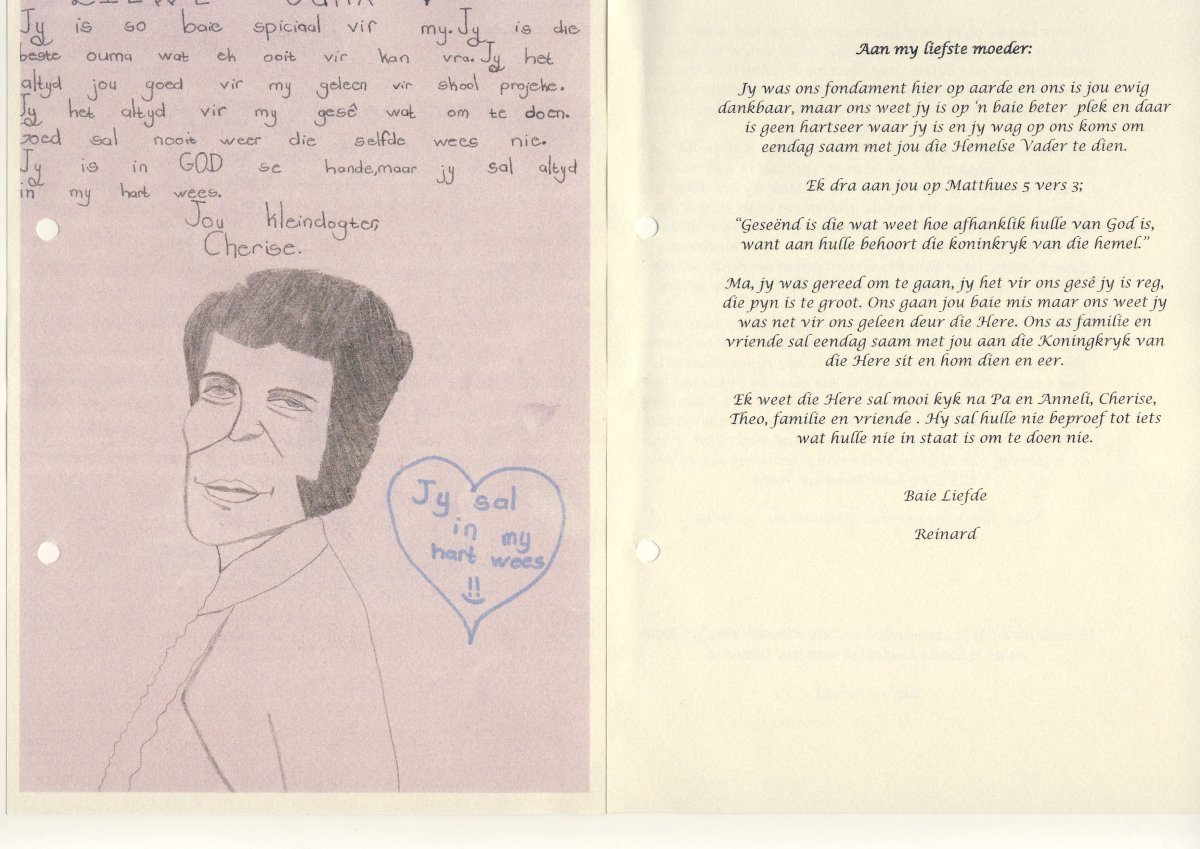 LIEWE OUMA
Jy is so baie spiciaal vir my. Jy is die
beste ouma wat ek ooit vir kan vra. Jy het
altyd jou goed vir my geleen vir skool projeke.
Jy het altyd vir my gesê wat om te doen.
goed sal nooit weer die selfde wees nie.
Jy is in GOD se hande, maar jy sal altyd
in my hart wees.
Jou kleindogter,
Cherise.
Jy sal
in my
hart wees
!!
Aan my liefste moeder:
Jy was ons fondament hier op aarde en ons is jou ewig
dankbaar, maar ons weet jy is op 'n baie beter plek en daar
is geen hartseer waar jy is en jy wag op ons koms om
eendag saam met jou die Hemelse Vader te dien.
Ek dra aan jou op Matthues 5 vers 3;
“Geseënd is die wat weet hoe afhanklik hulle van God is,
want aan hulle behoort die koninkryk van die hemel.”
Ma, jy was gereed om te gaan, jy het vir ons gesê jy is reg,
die pyn is te groot. Ons gaan jou baie mis maar ons weet jy
was net vir ons geleen deur die Here. Ons as familie en
vriende sal eendag saam met jou aan die Koningkryk van
die Here sit en hom dien en eer.
Ek weet die Here sal mooi kyk na Pa en Anneli, Cherise,
Theo, familie en vriende . Hy sal hulle nie beproef tot iets
wat hulle nie in staat is om te doen nie.
Baie Liefde
Reinard